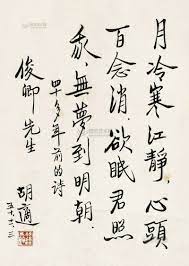 月冷寒江靜，心頭
百念消。欲眠君照
我，無夢到明朝。
四十多年前的詩
俊卿先生
胡適
五十、六、三